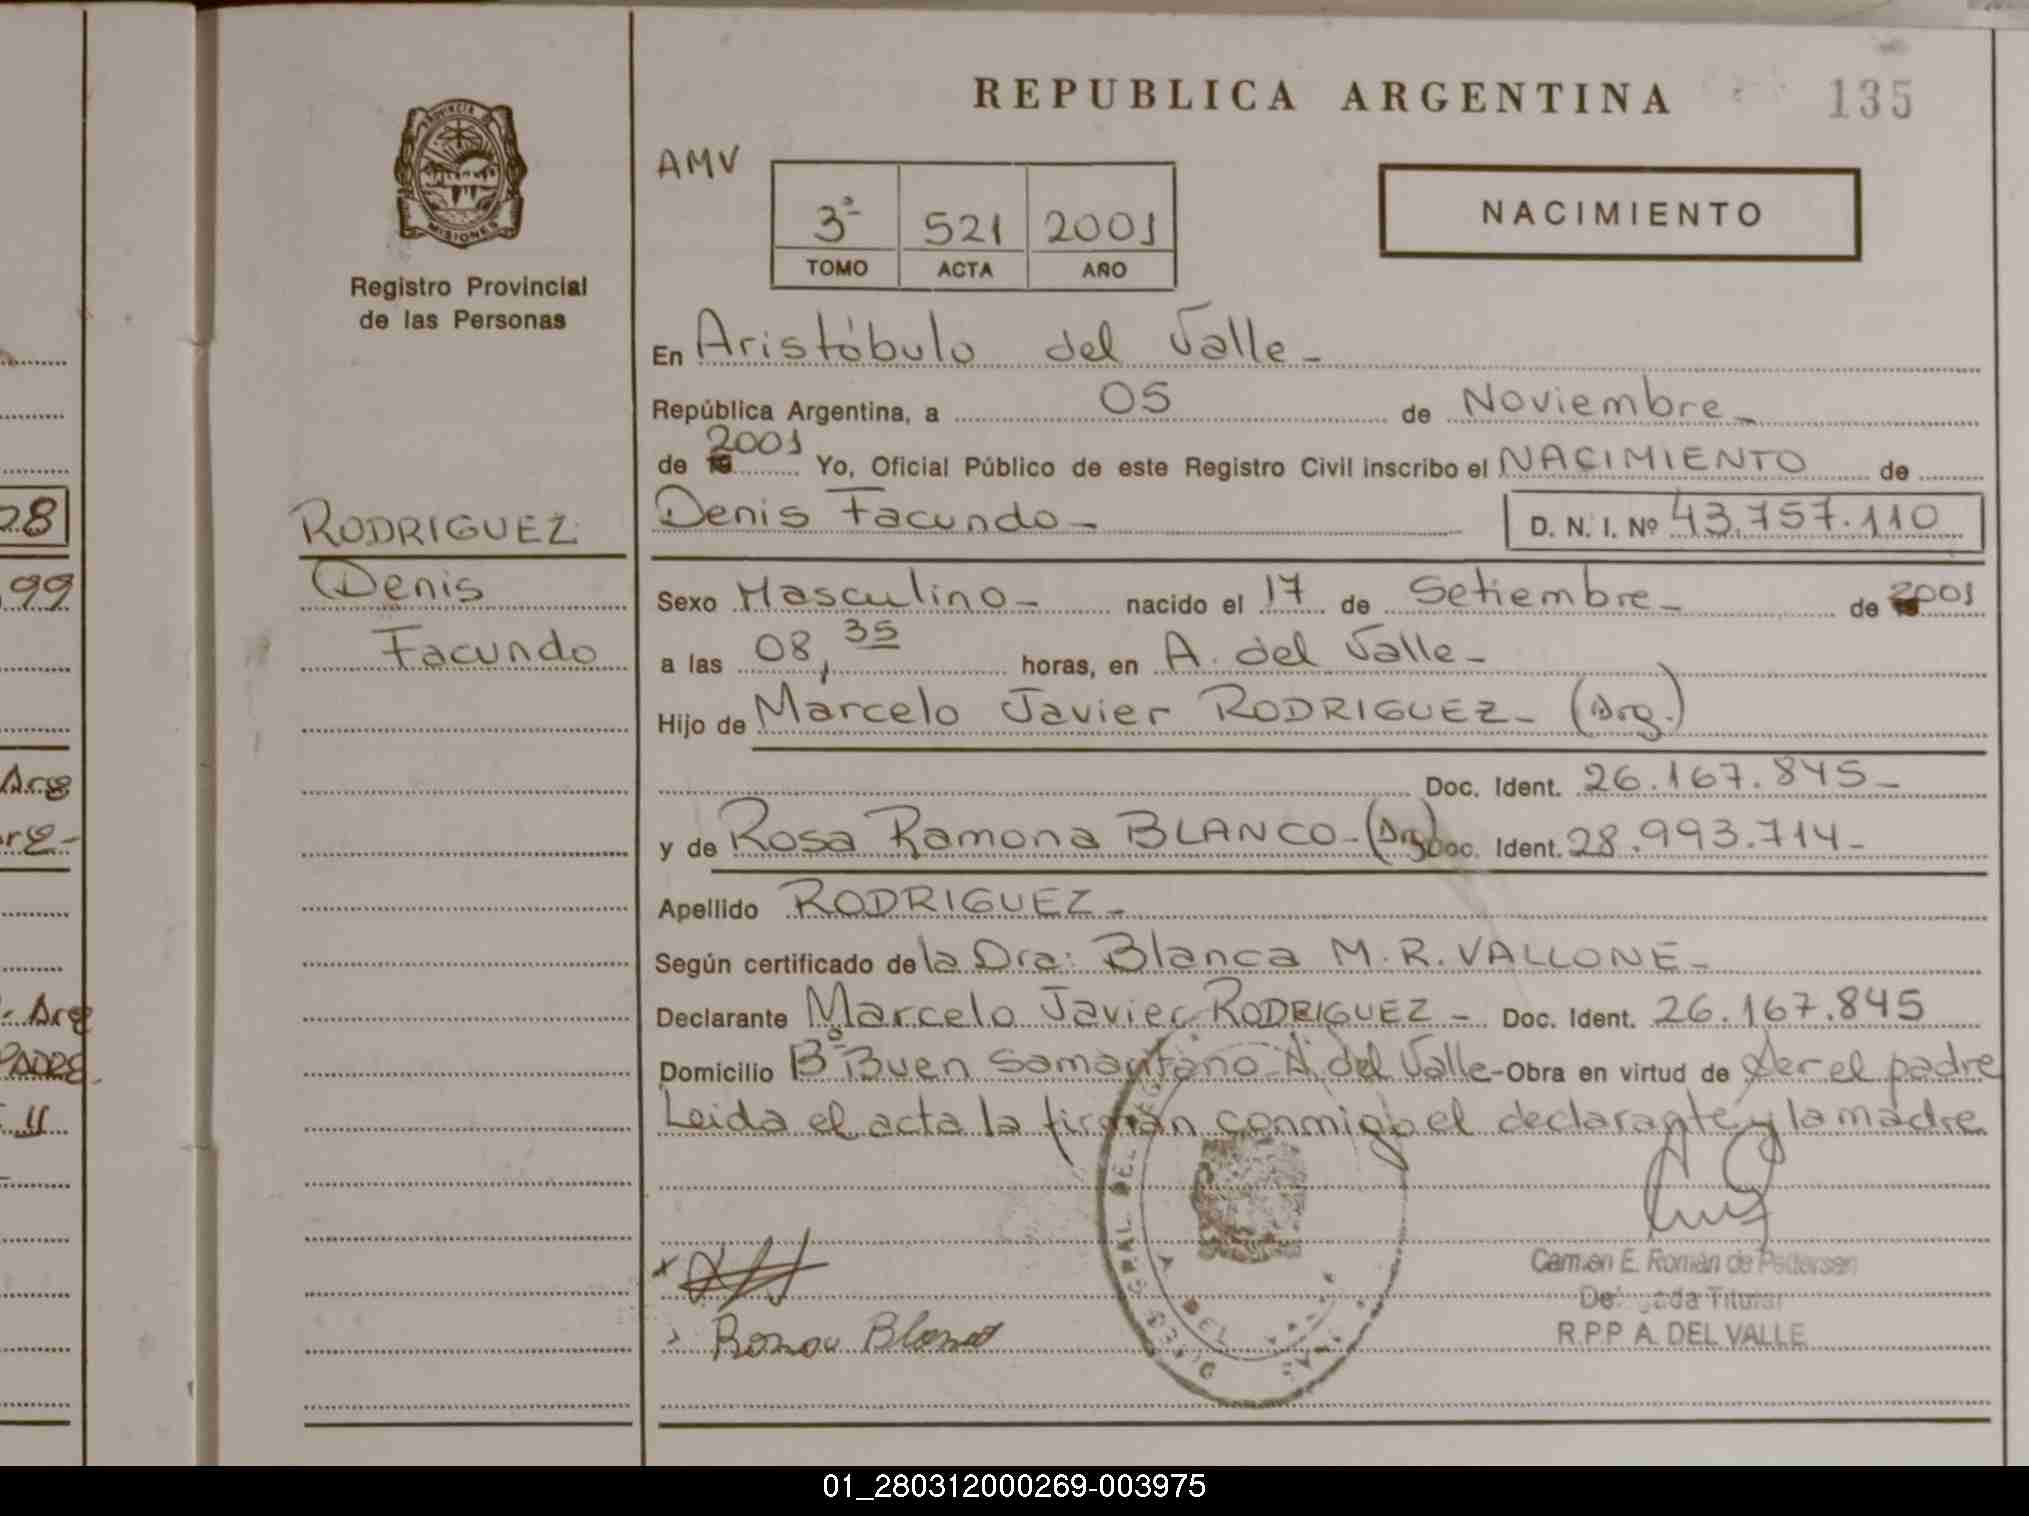 REPUBLICA ARGENTINA
135
PROVINCIA DE
MISIONES
Registro Provincial
de las Personas
AMV
3ª 521 2001
TOMO ACTA AÑO
NACIMIENTO
En Aristóbulo del Valle-
República Argentina, a 05 de Noviembre-
de 19 2001 Yo, Oficial Público de este Registro Civil inscribo el NACIMIENTO de
Denis Facundo- D. N. I. Nº 43.757.110
RODRIGUEZ
Denis
Facundo
Sexo Masculino- nacido el 17 de Setiembre- de 2001
a las 08,35 horas, en A. del Valle-
Hijo de Marcelo Javier RODRIGUEZ- (Arg.)
Doc. Ident. 26.167.845-
y de Rosa Ramona BLANCO-(Arg) Doc. Ident. 28.993.714-
Apellido RODRIGUEZ-
Según certificado de la Dra: Blanca M.R. VALLONE-
Declarante Marcelo Javier RODRIGUEZ- Doc. Ident. 26.167.845
Domicilio Bº Buen Samaritano-A. del Valle-Obra en virtud de ser el padre
Leida el acta la firman conmigo el declarante y la madre
Carmen E. Román de Pedersen
Delegada Titular
R.P.P A. DEL VALLE
28
99
Arg
Arg-
- Arg
PADRE
01_280312000269-003975